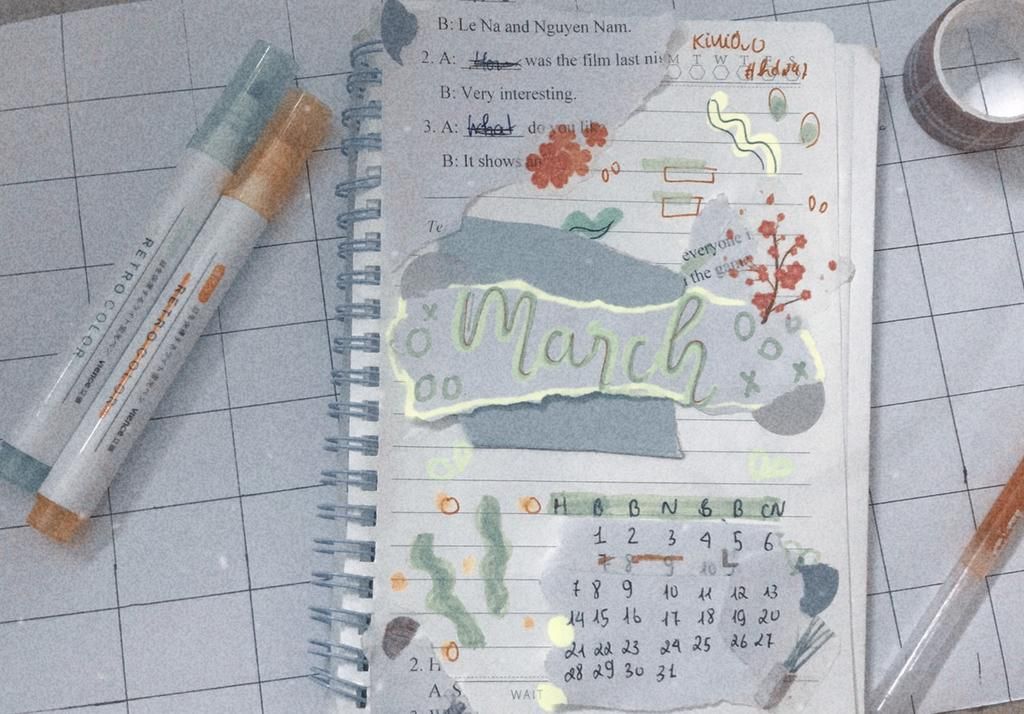 B: Le Na and Nguyen Nam.
2. A: How was the film last ni
B: Very interesting.
3. A: What do you lik
B: It shows an
KiuiOvO
M T W T F S
Te
everyone i
the game
March
RETROCOLOR
vience
RETROCOLOR
vience
H B B N S B CN
1 2 3 4 5 6
7 8 9 10
7 8 9 10 11 12 13
14 15 16 17 18 19 20
21 22 23 24 25 26 27
28 29 30 31
2. H
A. S.
WAIT